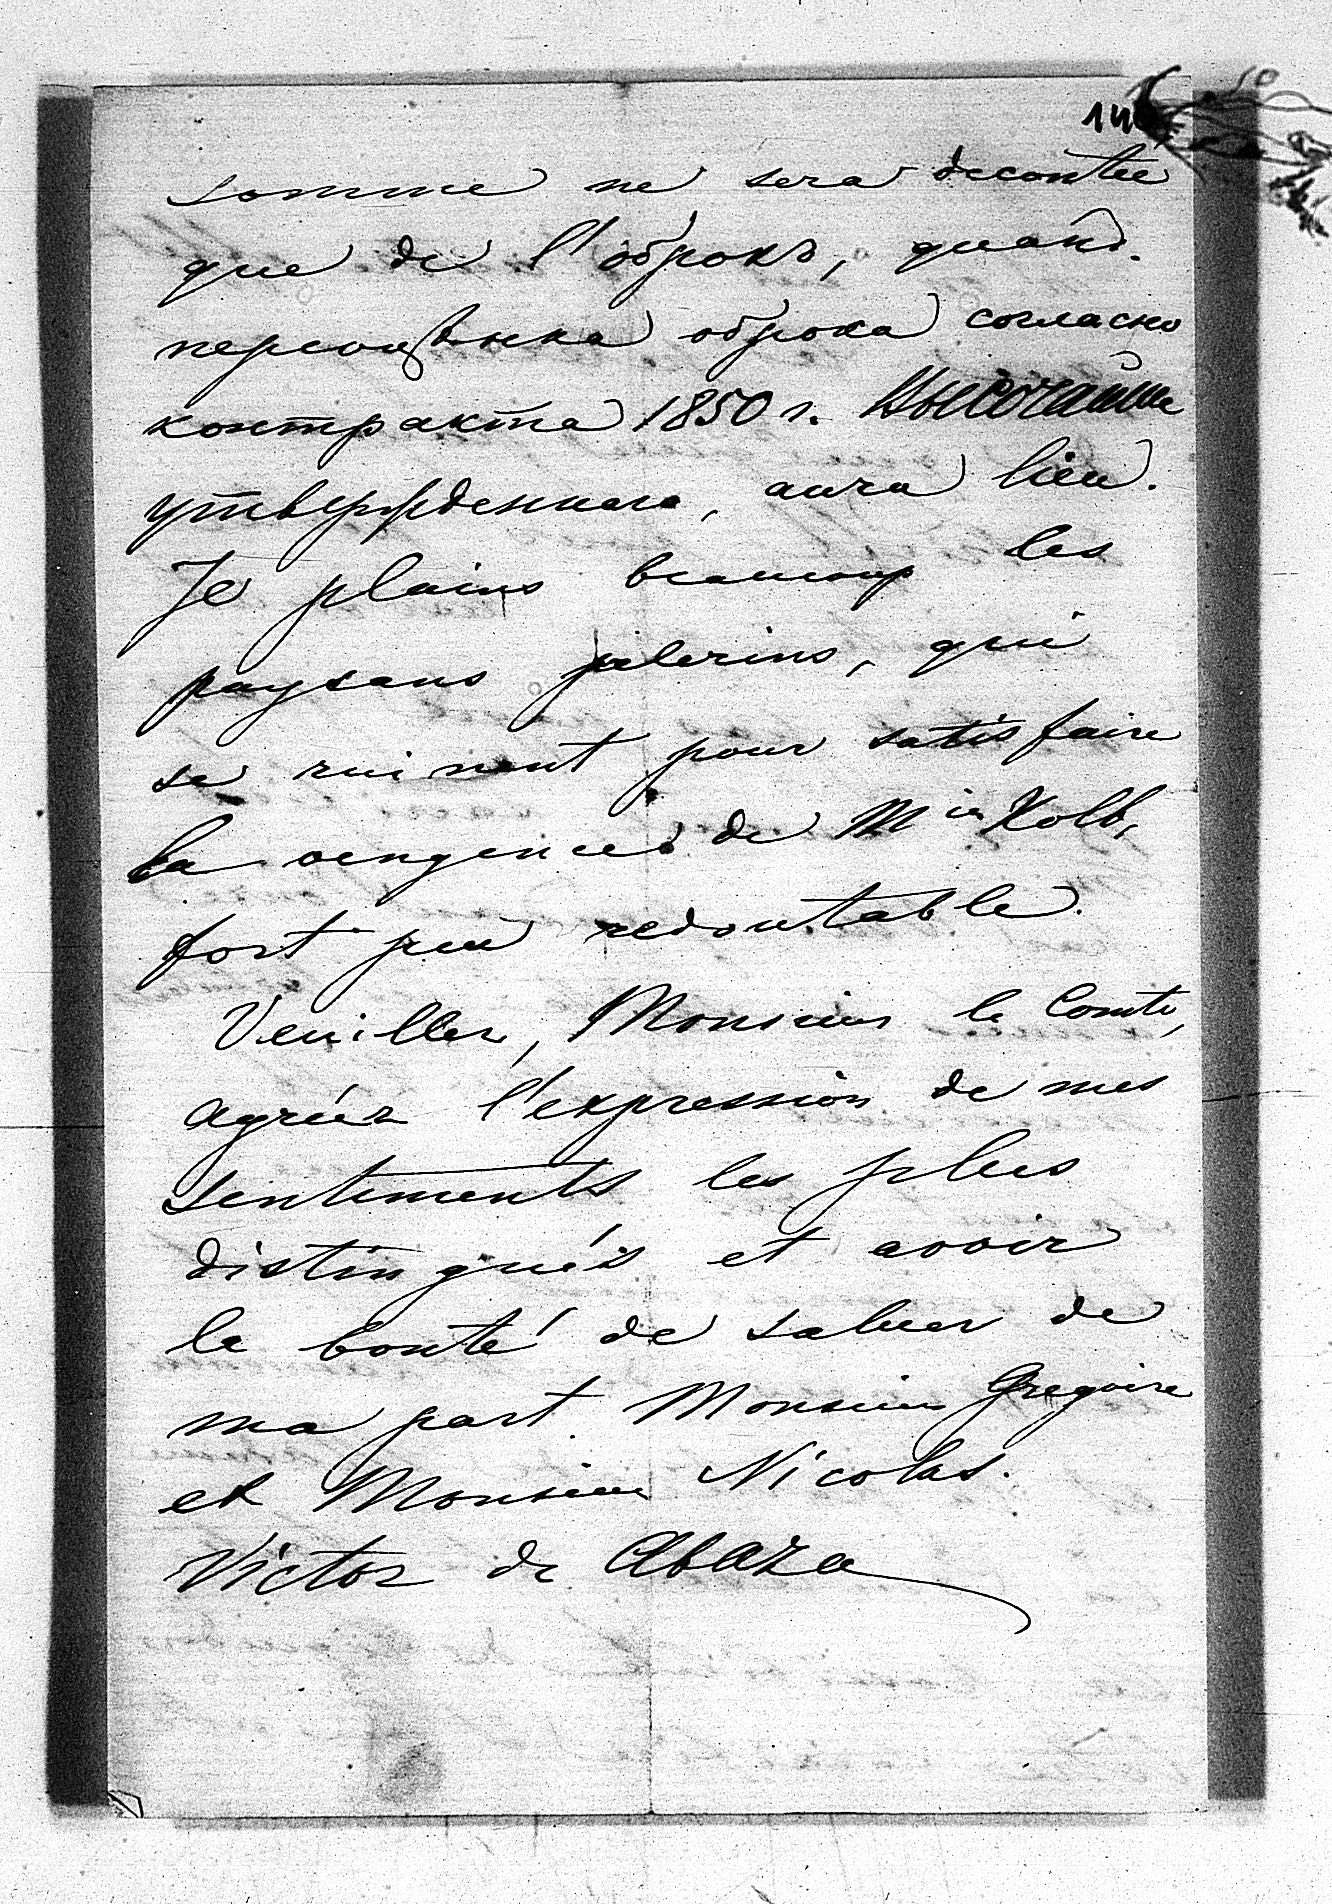 14
somme ne sera decontée
que de l'оброкъ, quand.
переоцѣнка оброка согласно
контракта 1850 г. Высочайше
утвержденнаго, aura lieu.
Je plains beaucoup les
paysans pelerins, qui
se ruinent pour satisfaire
la vengence de Mr Kolb,
fort peu redoutable.
Veuillez, Monsieur le Comte,
agréez l'expression de mes
sentiments les plus
distingués et avoir
la bonté de saluer de
ma part Monsieur Gregoire
et Monsieur Nicolas.
Victor de Abaza